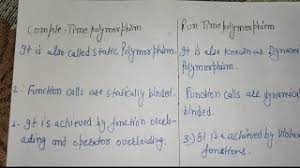 Compile-Time polymorphism
It is also called static Polymorphism.
2. Function calls are statically binded.
3. It is achieved by function overlo-
ading and operator overloading.
Run Time polymorphism
It is also known as Dynam
Polymorphism.
Function calls are dynamical
binded.
3) It is achieved by
functions.